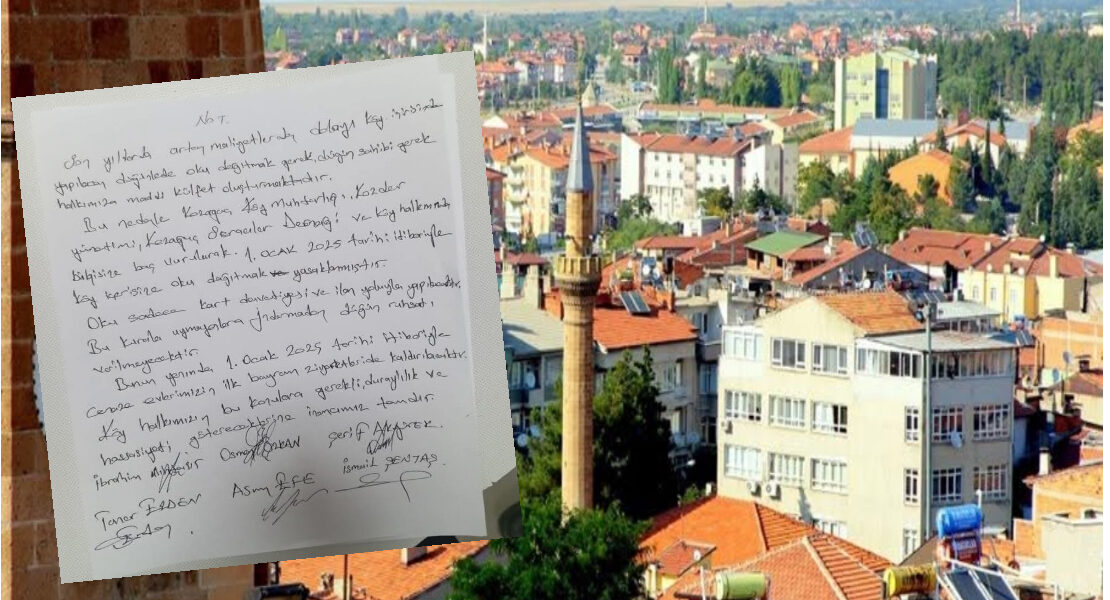 NOT.
Son yıllarda artan maliyetlerden dolayı Köy içerisinde
yapılacak düğünlede oku dağıtmak gerek, düğün sahibi gerek
halkımıza maddi külfet oluşturmaktadır.
Bu nedenle Kozağaç Köy muhtarlığı, Kozder
yönetimi, Kozağaç Derneği ve Köy halkımızda
bilgisine baş vurularak. 1. OCAK 2025 tarihi itibariyle
Köy içerisine oku dağıtmak yasaklanmıştır.
Oku sadece kart davetiyesi ve ilan yoluyla yapılacaktır.
Bu kurala uymayanlara düğün ruhsatı,
verilmeyecektir.
Bunun yanında 1. Ocak 2025 tarihi itibariyle
Cenaze evlerimizin ilk bayram ziyaretleride kaldırılacaktır.
Köy halkımızın bu konulara gerekli, duyarlılık ve
hassasiyeti göstereceklerine inancımız tamdır.
İbrahim Osman ÖZKAN Şerif
İsmail ŞENTAŞ
Taner ERDEN Asım EFE